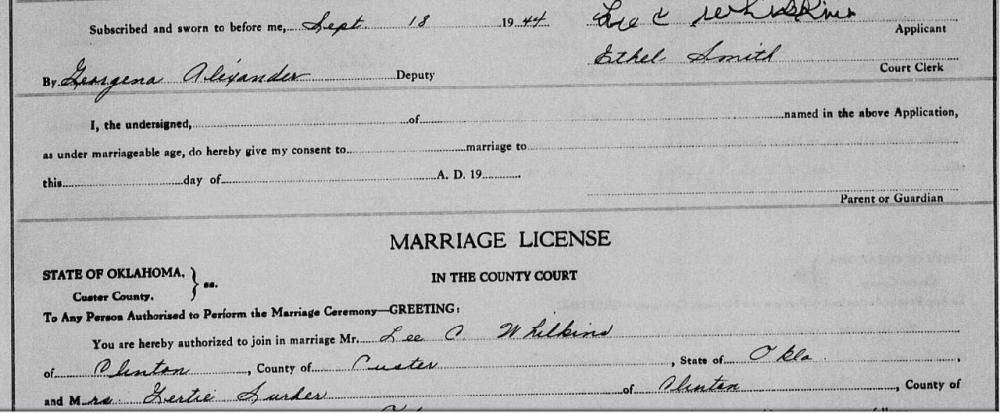 Subscribed and sworn to before me, Sept 18 1944 Lee C Whilkins
Applicant
Ethel Smith
By Georgena Alexander Deputy Court Clerk
I, the undersigned, of named in the above Application,
as under marriageable age, do hereby give my consent to marriage to
this day of A. D. 19
Parent or Guardian
MARRIAGE LICENSE
STATE OF OKLAHOMA, } ss. IN THE COUNTY COURT
Custer County.
To Any Person Authorised to Perform the Marriage Ceremony—GREETING:
You are hereby authorized to join in marriage Mr. Lee C. Whilkins
of Clinton, County of Custer, State of Okla.
and Mrs. Gertie of Clinton, County of